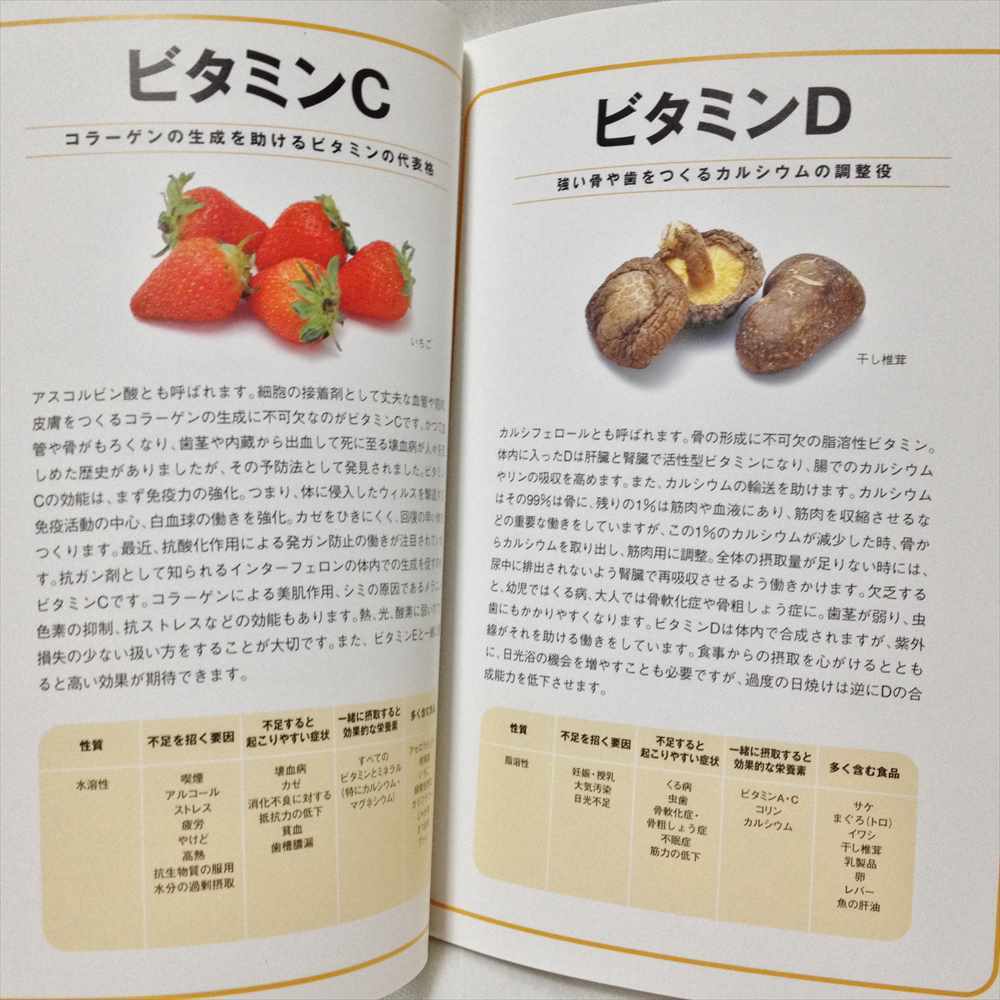 ビタミンC
コラーゲンの生成を助けるビタミンの代表格
いちご
アスコルビン酸とも呼ばれます。細胞の接着剤として丈夫な血管や
皮膚をつくるコラーゲンの生成に不可欠なのがビタミンCです。かつて
管や骨がもろくなり、歯茎や内蔵から出血して死に至る壊血病が人々を
しめた歴史がありましたが、その予防法として発見されました。ビタミ
Cの効能は、まず免疫力の強化。つまり、体に侵入したウィルスを撃退
免疫活動の中心、白血球の働きを強化。カゼをひきにくく、回復の早い
つくります。最近、抗酸化作用による発ガン防止の働きが注目されて
す。抗ガン剤として知られるインターフェロンの体内での生成を促す
ビタミンCです。コラーゲンによる美肌作用、シミの原因であるメラニ
色素の抑制、抗ストレスなどの効能もあります。熱、光、酸素に弱い
損失の少ない扱い方をすることが大切です。また、ビタミンEと一緒に
ると高い効果が期待できます。
性質
不足を招く要因
不足すると
起こりやすい症状
一緒に摂取すると
効果的な栄養素
多く含む
水溶性
喫煙
アルコール
ストレス
疲労
やけど
高熱
抗生物質の服用
水分の過剰摂取
壊血病
カゼ
消化不良に対する
抵抗力の低下
貧血
歯槽膿漏
すべての
ビタミンとミネラル
(特にカルシウム・
マグネシウム)
ビタミンD
強い骨や歯をつくるカルシウムの調整役
干し椎茸
カルシフェロールとも呼ばれます。骨の形成に不可欠の脂溶性ビタミン。
体内に入ったDは肝臓と腎臓で活性型ビタミンになり、腸でのカルシウム
やリンの吸収を高めます。また、カルシウムの輸送を助けます。カルシウム
はその99%は骨に、残りの1%は筋肉や血液にあり、筋肉を収縮させるな
どの重要な働きをしていますが、この1%のカルシウムが減少した時、骨か
らカルシウムを取り出し、筋肉用に調整。全体の摂取量が足りない時には、
尿中に排出されないよう腎臓で再吸収させるよう働きかけます。欠乏する
と、幼児ではくる病、大人では骨軟化症や骨粗しょう症に。歯茎が弱り、虫
歯にもかかりやすくなります。ビタミンDは体内で合成されますが、紫外
線がそれを助ける働きをしています。食事からの摂取を心がけるととも
に、日光浴の機会を増やすことも必要ですが、過度の日焼けは逆にDの合
成能力を低下させます。
性質
不足を招く要因
不足すると
起こりやすい症状
一緒に摂取すると
効果的な栄養素
多く含む食品
脂溶性
妊娠・授乳
大気汚染
日光不足
くる病
虫歯
骨軟化症・
骨粗しょう症
不眠症
筋力の低下
ビタミンA・C
コリン
カルシウム
サケ
まぐろ(トロ)
イワシ
干し椎茸
乳製品
卵
レバー
魚の肝油